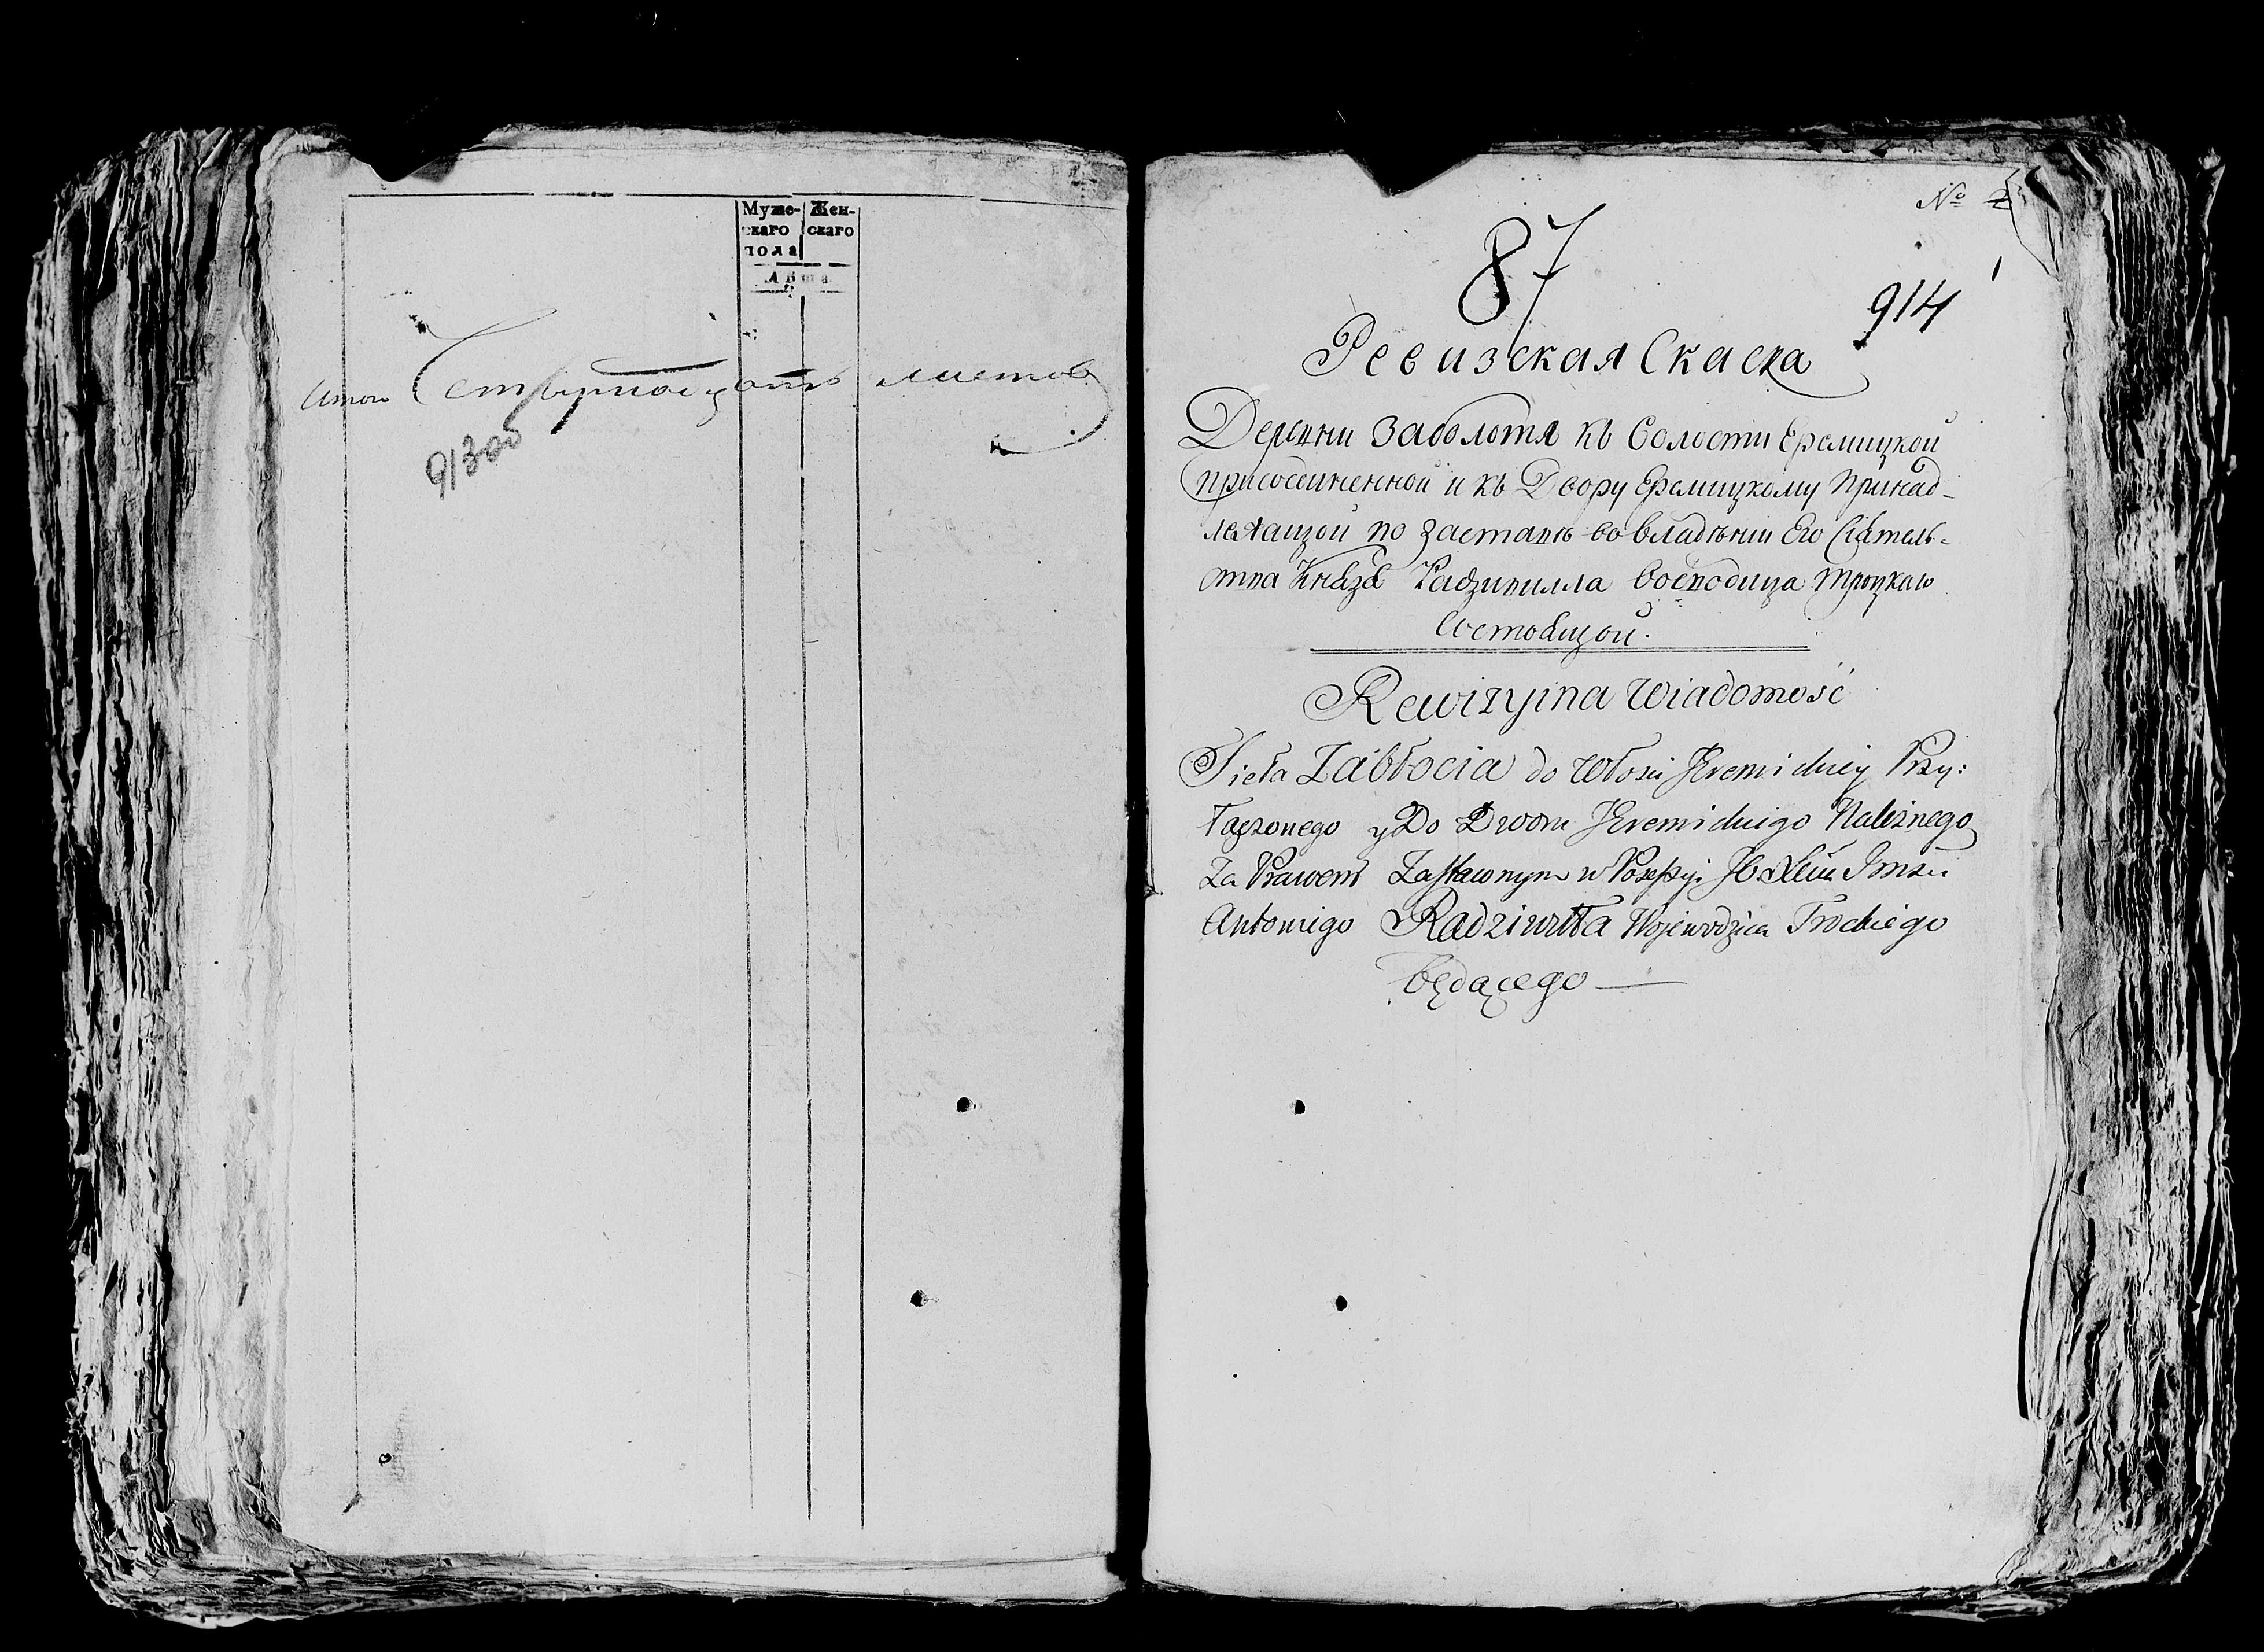 Муже-
скаго
пола
Жен-
скаго
Итого Четырнадцать листов
913об
№ 2
87
914
Ревизская Скаска
Деревни Заболотя къ Волости Еремицкой
присоединенной и къ Двору Еремицкому Принад-
лежащой по заставѣ во владѣнии Его Сіятель-
ства Князя Радзивилла Воеводица Троцкаго
состоящой.
Rewizyina Wiadomość
Sieła Zabłocia do Włosci Jeremickiey Przy:
łączonego y Do Dworu Jeremickiego Należnego
Za Prawem Zastawnym w Possessyi
Antoniego Radziwiłła Wojewodzica Trockiego
będącego —